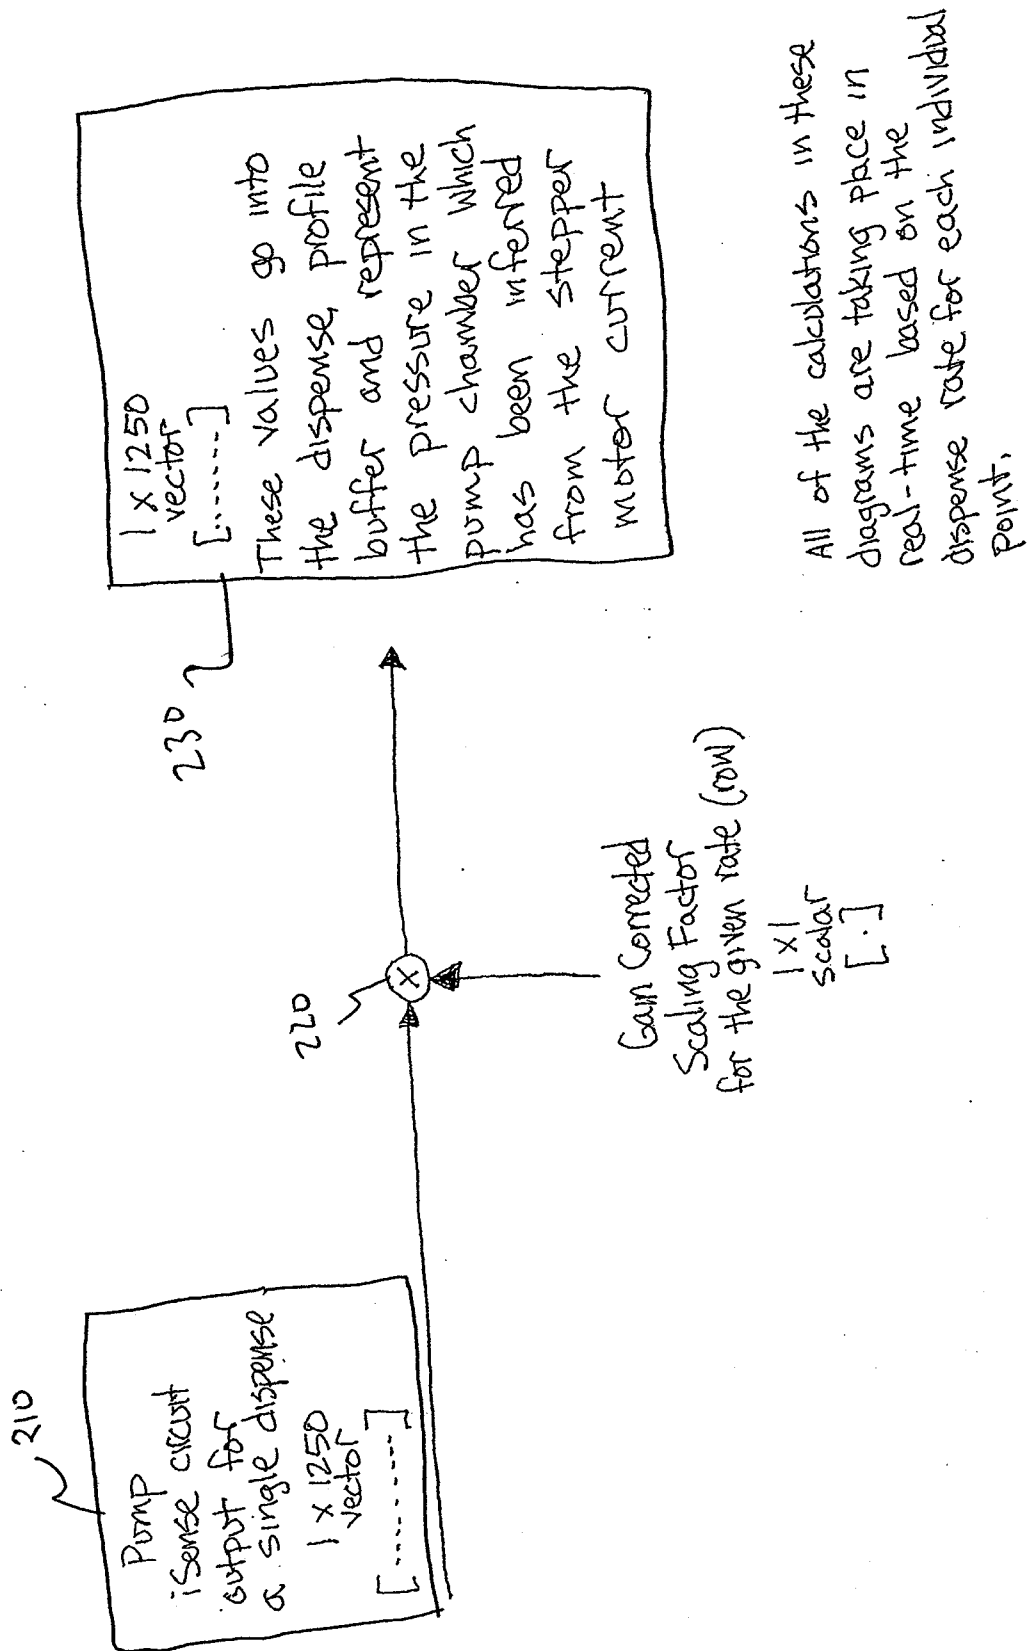 210
Pump
iSense circuit
output for
a single dispense
1 x 1250
vector
[.........]
220
X
Gain Corrected
Scaling Factor
for the given rate (row)
1 x 1
scalar
[.]
230
1 x 1250
vector
[......]
These values go into
the dispense profile
buffer and represent
the pressure in the
pump chamber which
has been inferred
from the stepper
motor current
All of the calculations in these
diagrams are taking place in
real-time based on the
dispense rate for each individual
point.